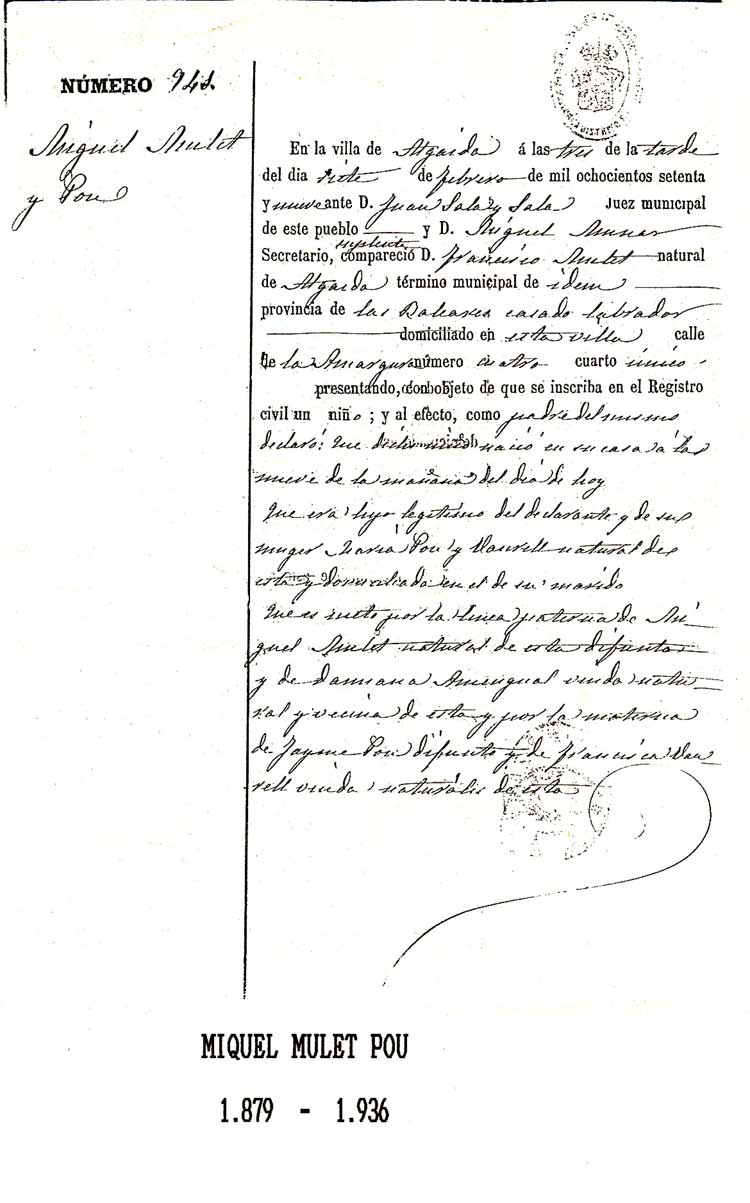 NÚMERO 941.
Miguel Mulet
y Pou
En la villa de Algaida á las tres de la tarde
del dia siete de febrero de mil ochocientos setenta
y nueve ante D. Juan Sala y Sala Juez municipal
de este pueblo y D. Miguel Munar
suplente
Secretario, compareció D. Francisco Mulet natural
de Algaida término municipal de idem
provincia de las Baleares casado labrador
domiciliado en esta villa calle
de la Amargura número cuatro cuarto único
presentando, con objeto de que se inscriba en el Registro
civil un niño; y al efecto, como padre del mismo
declaró: Que nació en su casa a las
nueve de la mañana del dia de hoy
Que era hijo legitimo del declarante y de su
muger Maria Pou y Vanrell natural de
esta y domiciliada en el de su marido
Que es nieto por la linea paterna de Mi-
guel Mulet natural de esta difunto
y de Damiana Amengual viuda natu-
ral y vecina de esta y por la materna
de Jayme Pou difunto y de Francisca Van-
rell viuda naturales de esta
MIQUEL MULET POU
1.879 - 1.936